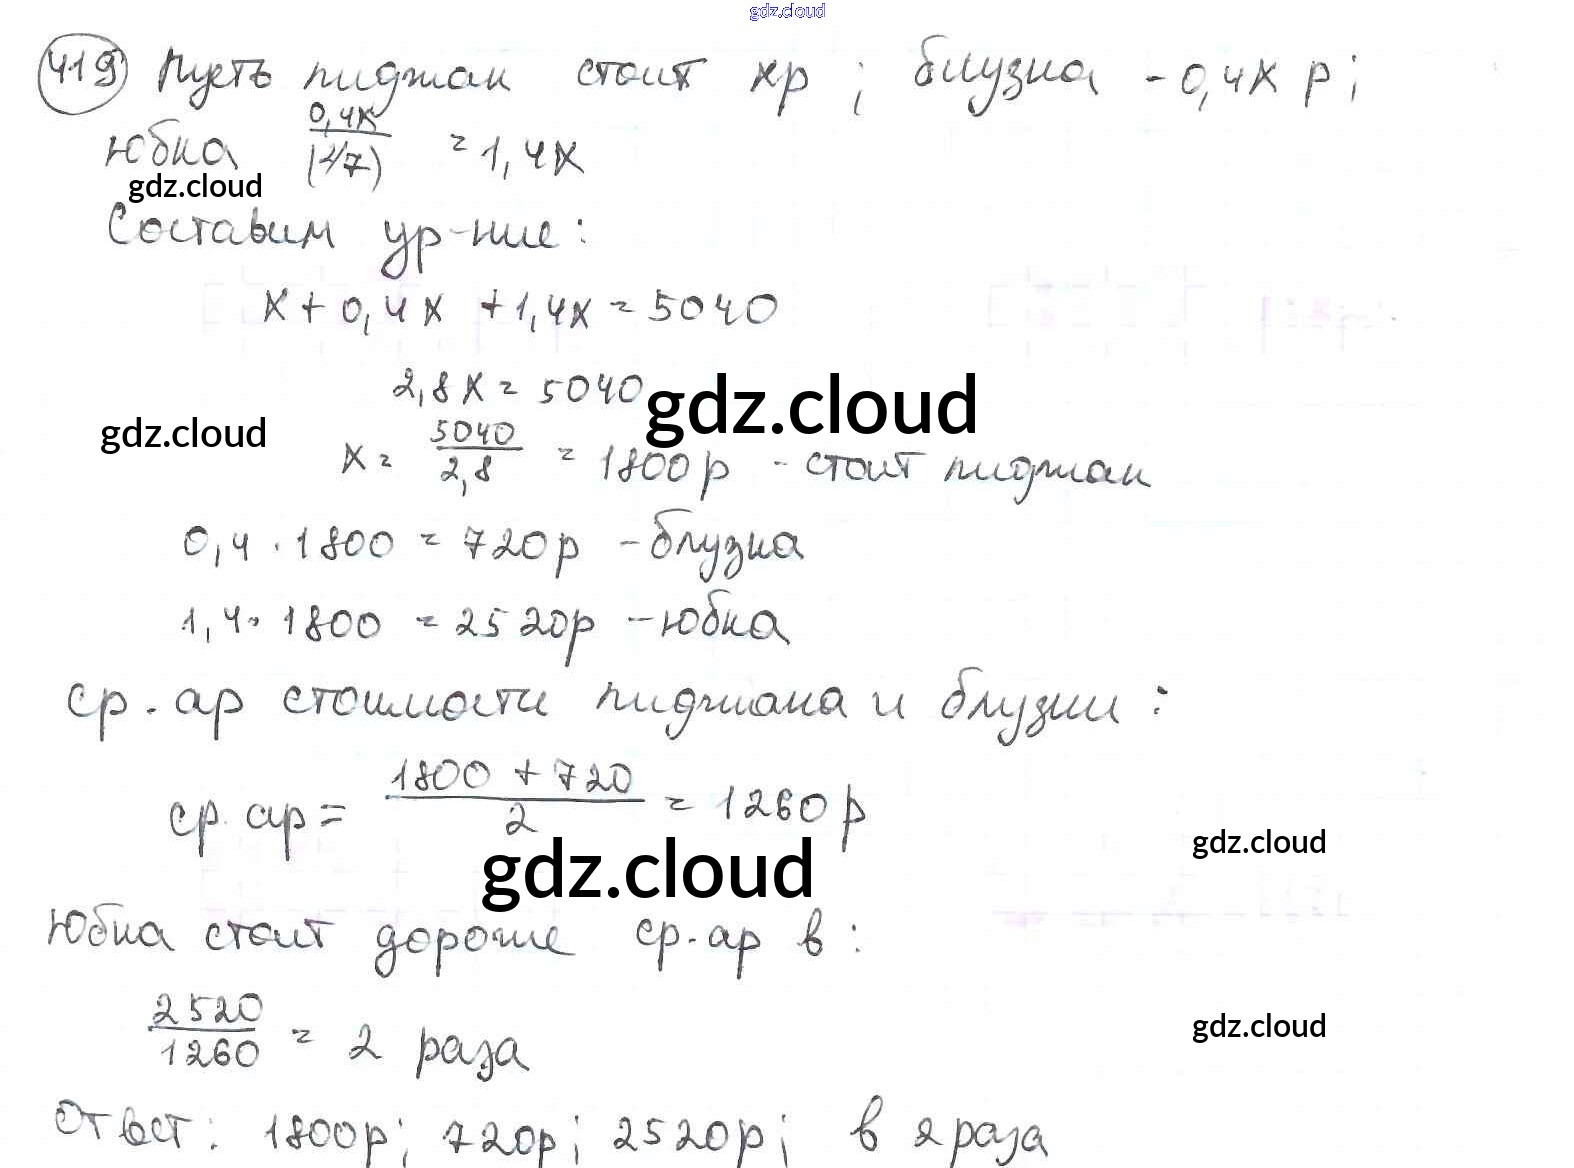 gdz.cloud
419 Пусть пиджак стоит xр ; блузка - 0,4x р ;
юбка 0,4x/(2/7) = 1,4x
gdz.cloud
Составим ур-ние:
x + 0,4x + 1,4x = 5040
2,8x = 5040
gdz.cloud
gdz.cloud
x = 5040/2,8 = 1800р - стоит пиджак
0,4 · 1800 = 720р - блузка
1,4 · 1800 = 2520р - юбка
ср. ар стоимости пиджака и блузки :
ср. ар = (1800 + 720)/2 = 1260р
gdz.cloud
gdz.cloud
Юбка стоит дороже ср. ар в :
2520/1260 = 2 раза
gdz.cloud
Ответ: 1800р; 720р; 2520р; в 2 раза